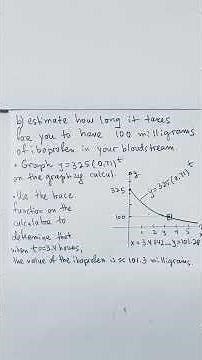 b) estimate how long it takes
for you to have 100 milligrams
of ibuprofen in your bloodstream.
• Graph y=325(0.71)^t
on the graphing calcul.
• Use the trace
function on the
calculator to
determine that
when t=3.4 hours,
the value of the ibuprofen is ≈ 101.3 milligrams.
y
325
y=325(0.71)^t
100
1 2 3 4 5
x=3.4042 y=101.28